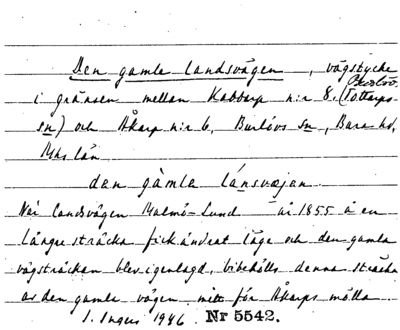 Den gamle landsvägen, vägstycke
i gränsen mellan Kabbarp n:r 8. (Tottarps
sn) och Åkarp n:r 6, Burlövs sn, Bara hd,
Mhs län
den gàmle lánsvæjen
När landsvägen Malmö-Lund år 1855 å en
längre sträcka fick ändrat läge och den gamla
vägsträckan blev igenlagd, bibehölls denna sträcka
av den gamle vägen mitt för Åkarps mölla.
1. Ingers 1946. Nr 5542.